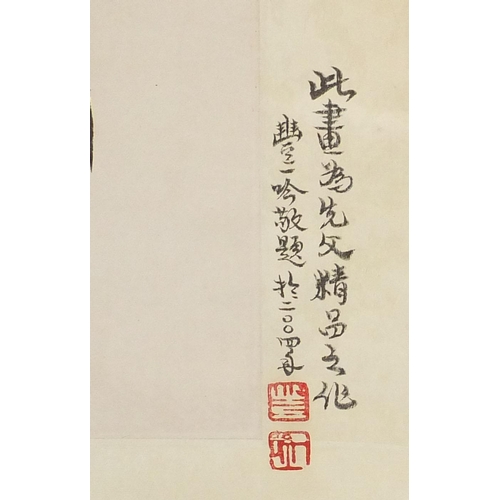 此畫為先父精品之作
豐一吟敬題於二〇〇四年